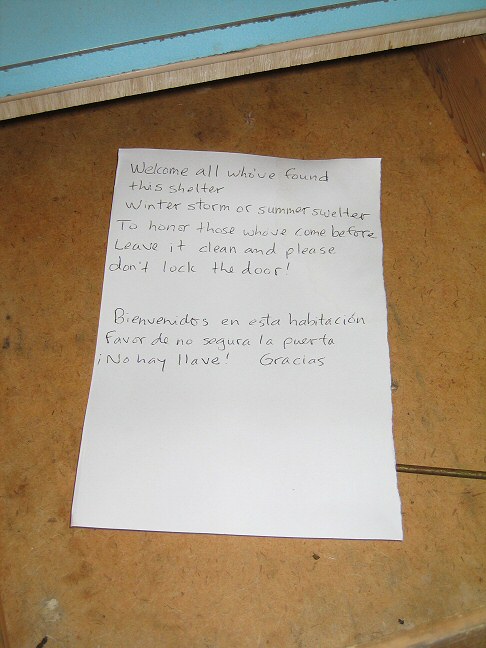 Welcome all who've found
this shelter
Winter storm or summer swelter
To honor those whove come before
Leave it clean and please
don't lock the door!
Bienvenidos en esta habitación
Favor de no segura la puerta
¡No hay llave! Gracias